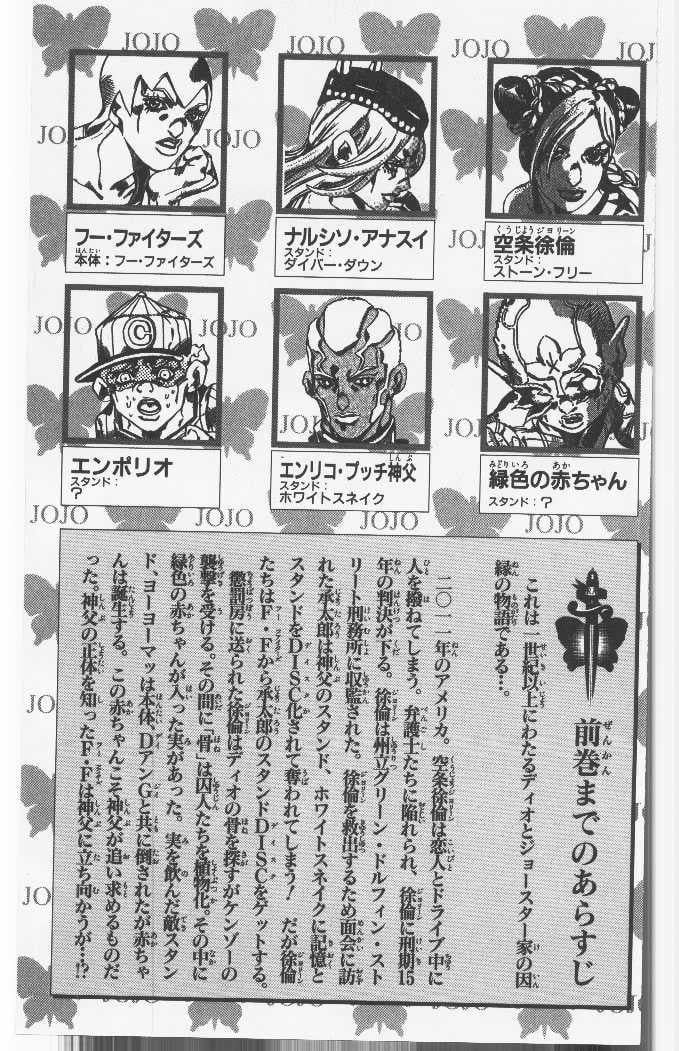 JOJO JOJO JOJO JOJO
空条徐倫
くうじょうジョリーン
スタンド：
ストーン・フリー
ナルシソ・アナスイ
スタンド：
ダイバー・ダウン
フー・ファイターズ
本体：フー・ファイターズ
ほんたい
緑色の赤ちゃん
みどりいろ あか
スタンド：？
エンリコ・プッチ神父
しんぷ
スタンド：
ホワイトスネイク
エンポリオ
スタンド：
？
C
前巻までのあらすじ
ぜんかん
これは一世紀以上にわたるディオとジョースター家の因
縁の物語である…。
二〇一一年のアメリカ。空条徐倫は恋人とドライブ中に
人を撥ねてしまう。弁護士たちに陥れられ、徐倫に刑期15
年の判決が下る。徐倫は州立グリーン・ドルフィン・スト
リート刑務所に収監された。徐倫を救出するため面会に訪
れた承太郎は神父のスタンド、ホワイトスネイクに記憶と
スタンドをDISC化されて奪われてしまう！　だが徐倫
たちはF・Fから承太郎のスタンドDISCをゲットする。
懲罰房に送られた徐倫はディオの骨を探すがケンゾーの
襲撃を受ける。その間に「骨」は囚人たちを植物化。その中に
緑色の赤ちゃんが入った実があった。実を飲んだ敵スタン
ド、ヨーヨーマッは本体、DアンGと共に倒されたが赤ちゃ
んは誕生する。この赤ちゃんこそ神父が追い求めるものだ
った。神父の正体を知ったF・Fは神父に立ち向かうが…!?